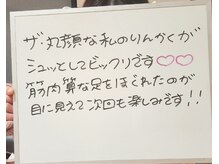 ザ・丸顔な私のりんかくが
シュッとしてビックリです♡♡
筋肉質な足をほぐれたのが
目に見えて次回も楽しみです!!